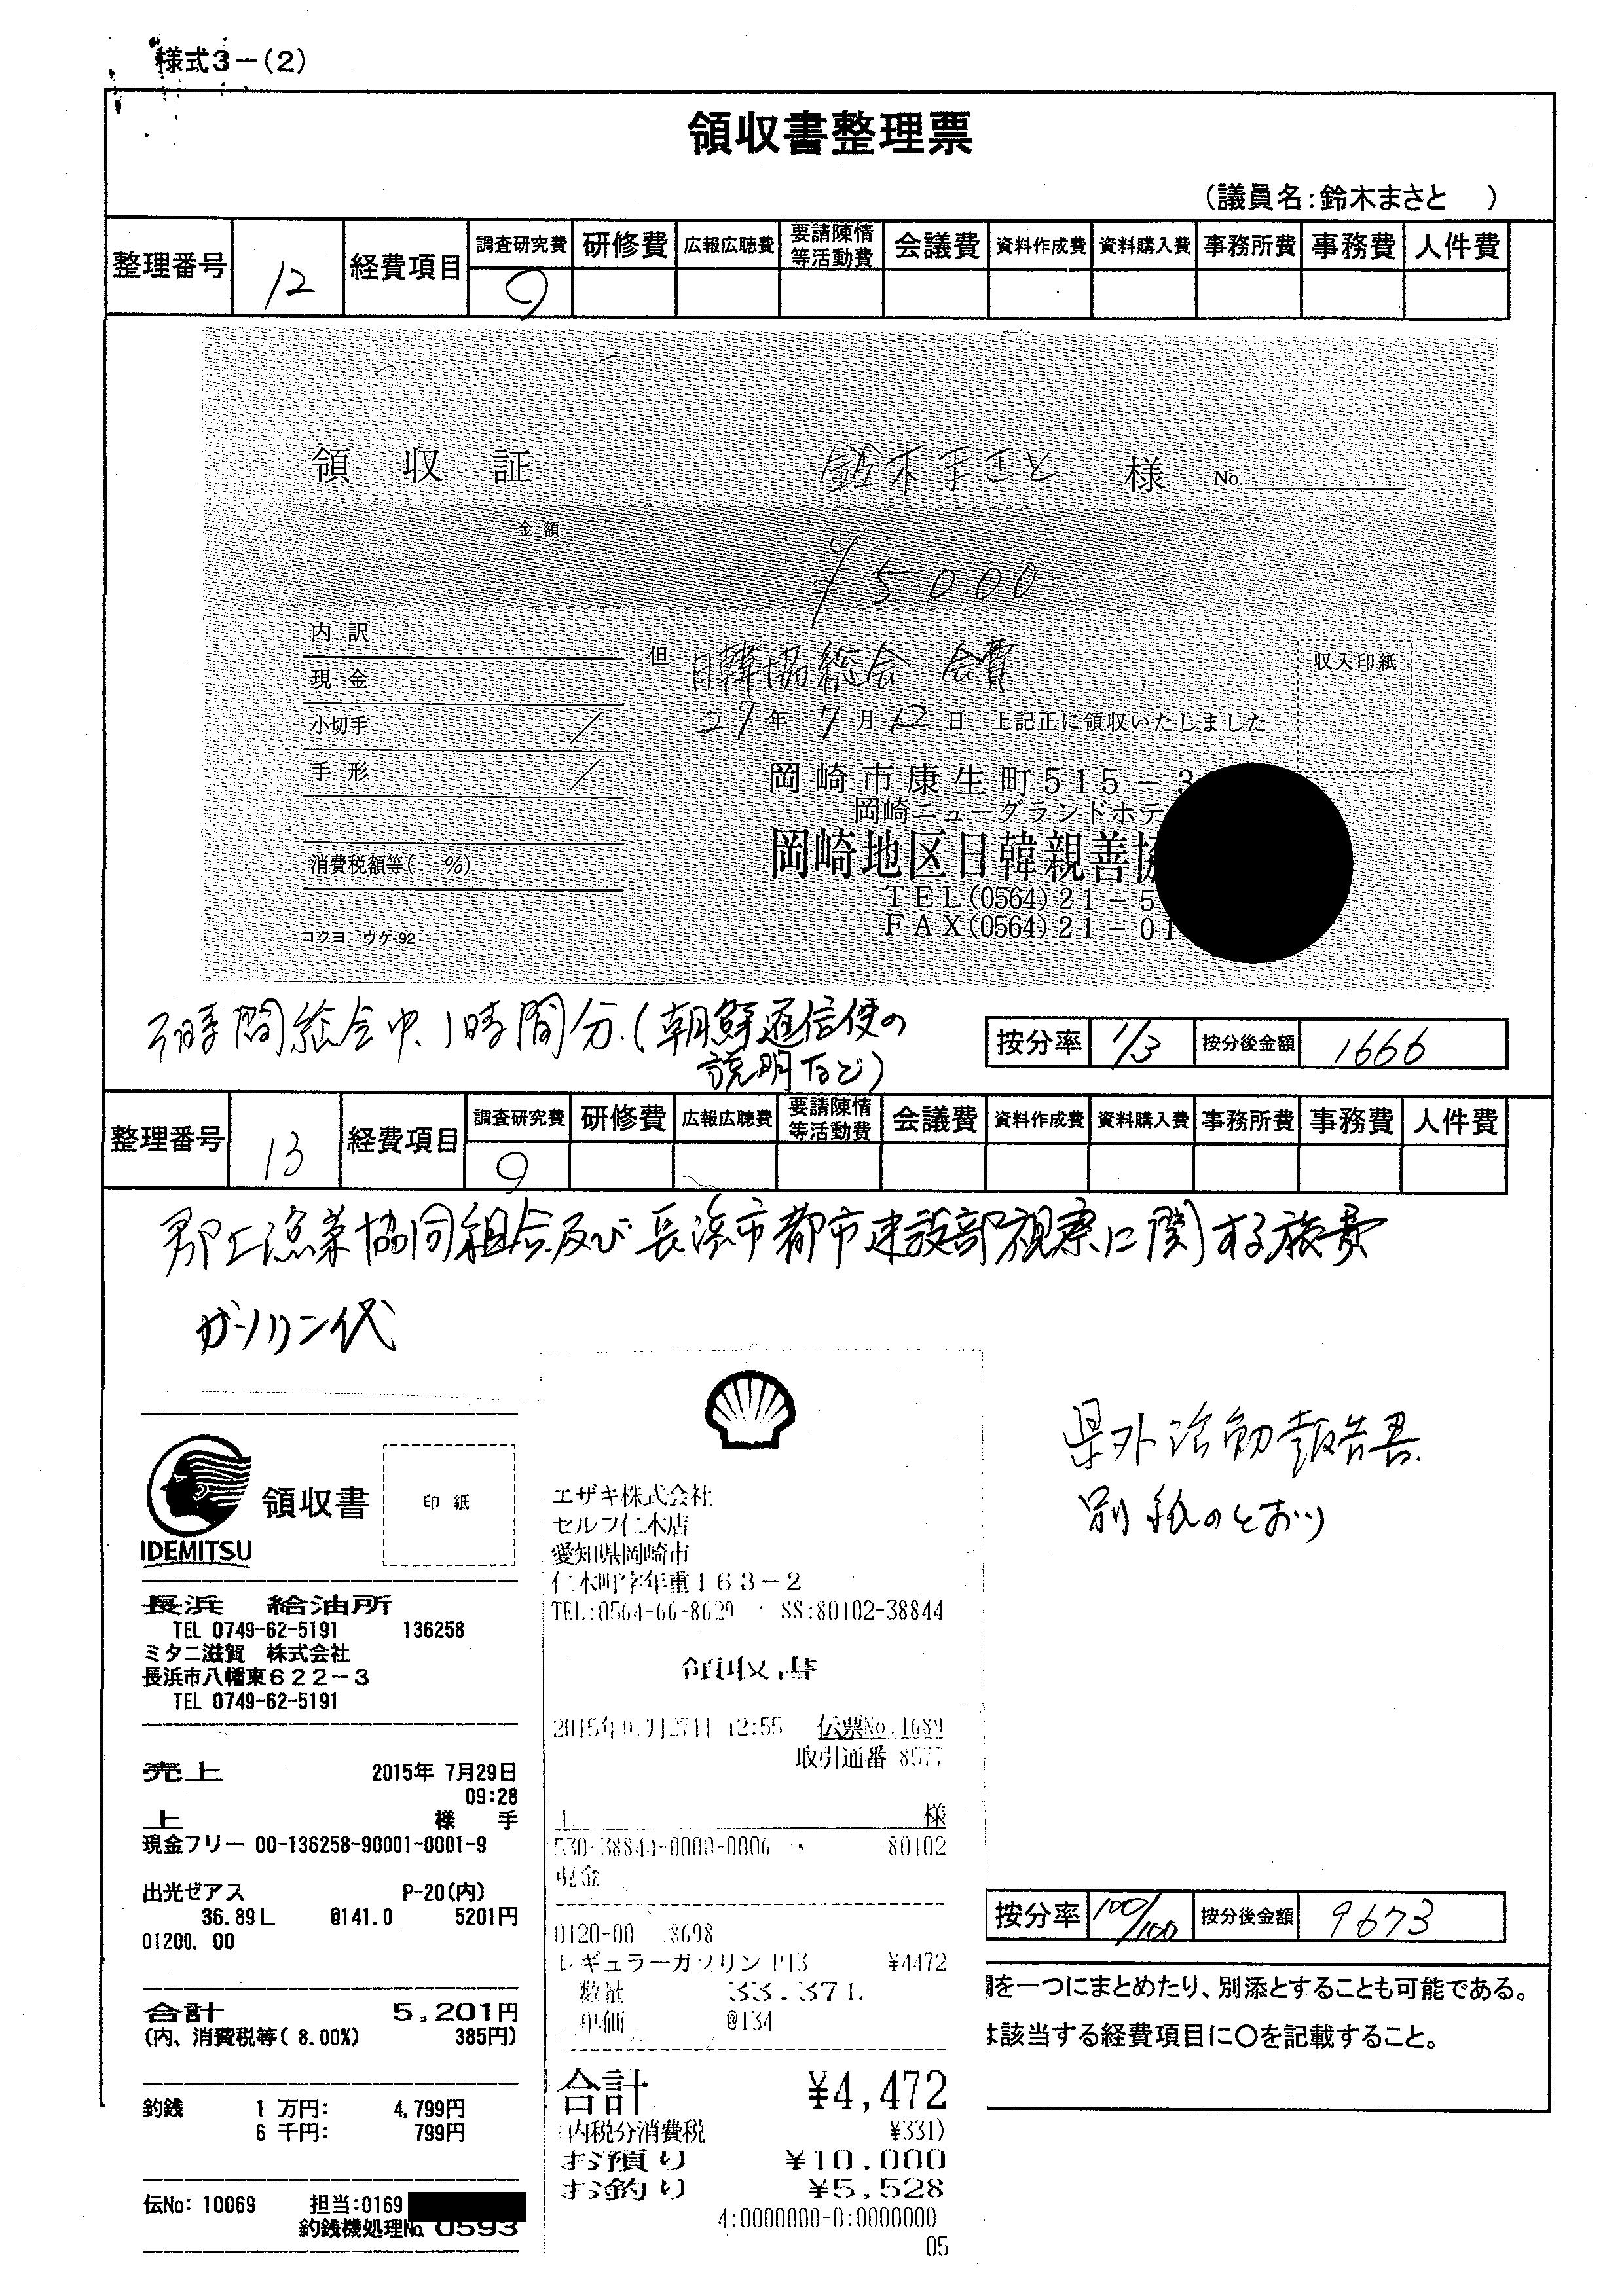 様式3-(2)
領収書整理票
(議員名:鈴木まさと )
整理番号 12 経費項目 調査研究費 研修費 広報広聴費 要請陳情等活動費 会議費 資料作成費 資料購入費 事務所費 事務費 人件費
領収証 鈴木まさと 様 No.
金額
¥5000
内訳
但 日韓協総会 会費
収入印紙
現金
27年7月12日 上記正に領収いたしました
小切手
手形
岡崎市康生町515-3
岡崎ニューグランドホテ
岡崎地区日韓親善協
消費税額等( %)
TEL(0564)21-5
FAX(0564)21-01
コクヨ ウケ-92
3時間総会中、1時間分.(朝鮮通信使の
説明など)
按分率 1/3 按分後金額 1666
整理番号 13 経費項目 調査研究費 研修費 広報広聴費 要請陳情等活動費 会議費 資料作成費 資料購入費 事務所費 事務費 人件費
郡上漁業協同組合及び長浜市都市建設部視察に関する旅費
ガソリン代
県外活動報告書
別紙のとおり
IDEMITSU
領収書
印紙
長浜 給油所
TEL 0749-62-5191 136258
ミタニ滋賀 株式会社
長浜市八幡東622-3
TEL 0749-62-5191
売上 2015年 7月29日
09:28
上 様 手
現金フリー 00-136258-90001-0001-9
出光ゼアス P-20(内)
36.89L @141.0 5201円
01200. 00
合計 5,201円
(内、消費税等( 8.00%) 385円)
釣銭 1 万円: 4,799円
6 千円: 799円
伝No: 10069 担当:0169
釣銭機処理No. 0593
エザキ株式会社
セルフ仁木店
愛知県岡崎市
仁木町字年重163-2
TEL:0564-66-8629 SS:80102-38844
領収書
2015年 12:55 伝票No.1689
取引通番
上 様
530-38844-0000-0006 80102
現金
0120-00 8698
レギュラーガソリン P13 ¥4472
数量 33.37L
単価 @134
合計 ¥4,472
内税分消費税 ¥331)
お預り ¥10,000
お釣り ¥5,528
4:0000000-0:0000000
05
按分率 100/100 按分後金額 9673
を一つにまとめたり、別添とすることも可能である。
は該当する経費項目に〇を記載すること。